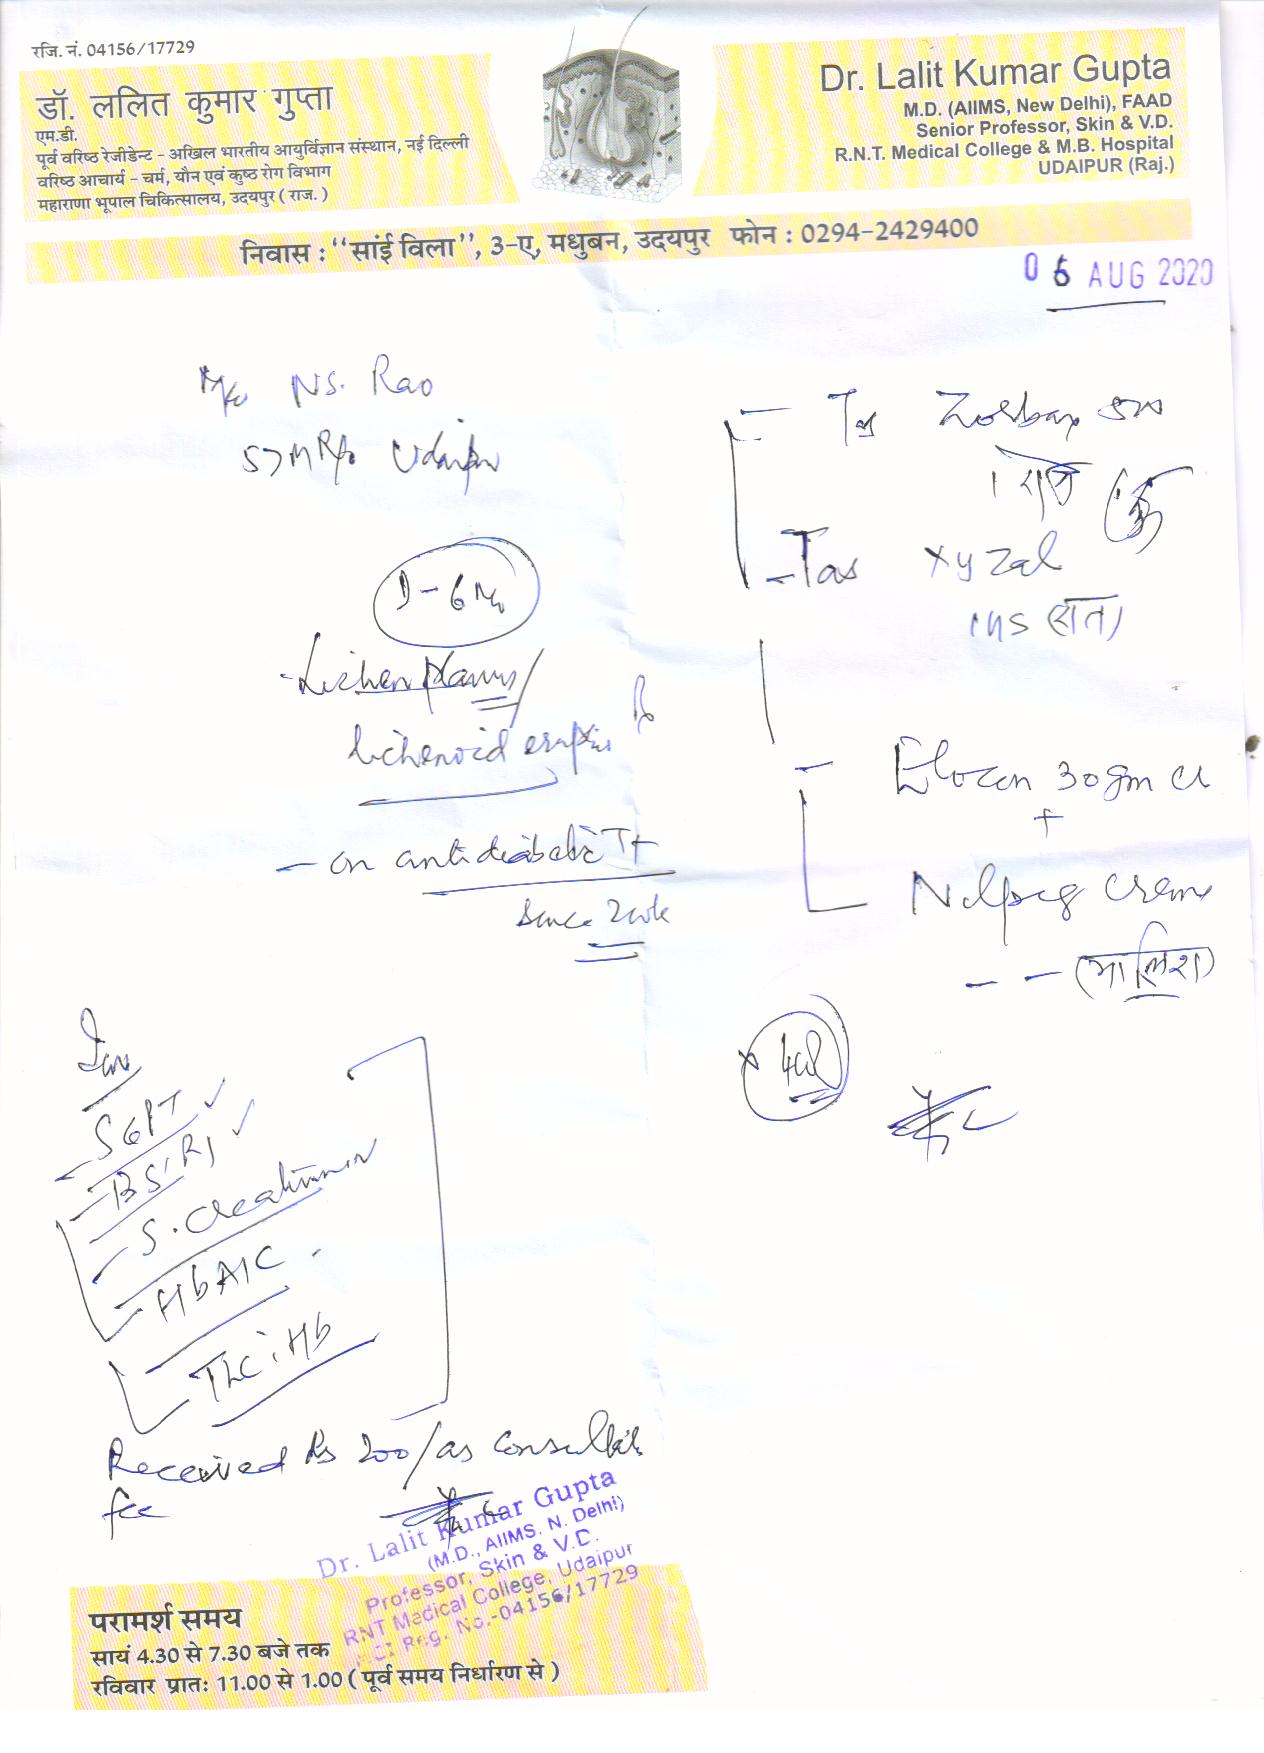 रजि. नं. 04156/17729
डॉ. ललित कुमार गुप्ता
एम.डी.
पूर्व वरिष्ठ रेजीडेन्ट - अखिल भारतीय आयुर्विज्ञान संस्थान, नई दिल्ली
वरिष्ठ आचार्य - चर्म, यौन एवं कुष्ठ रोग विभाग
महाराणा भूपाल चिकित्सालय, उदयपुर ( राज. )
Dr. Lalit Kumar Gupta
M.D. (AIIMS, New Delhi), FAAD
Senior Professor, Skin & V.D.
R.N.T. Medical College & M.B. Hospital
UDAIPUR (Raj.)
निवास : "सांई विला", 3-ए, मधुबन, उदयपुर फोन : 0294-2429400
06 AUG 2020
NS. Rao
57 M R/o Udaipur
D-6
- Lichen planus/
lichenoid eruption
- on antidiabetic Tt
since
Inv
- SGPT ✓
- BS(R) ✓
- S. Creatinine
- HbA1C
- TLC, Hb
-
- Tas Xyzal
1 HS (रात)
- Elocon 30gm
+
Creme
- - (मालिश)
Received Rs 200/ as
fee
Dr. Lalit Kumar Gupta
(M.D., AIIMS, N. Delhi)
Professor, Skin & V.D.
RNT Medical College, Udaipur
Reg. No.-04156/17729
परामर्श समय
सायं 4.30 से 7.30 बजे तक
रविवार प्रातः 11.00 से 1.00 ( पूर्व समय निर्धारण से )